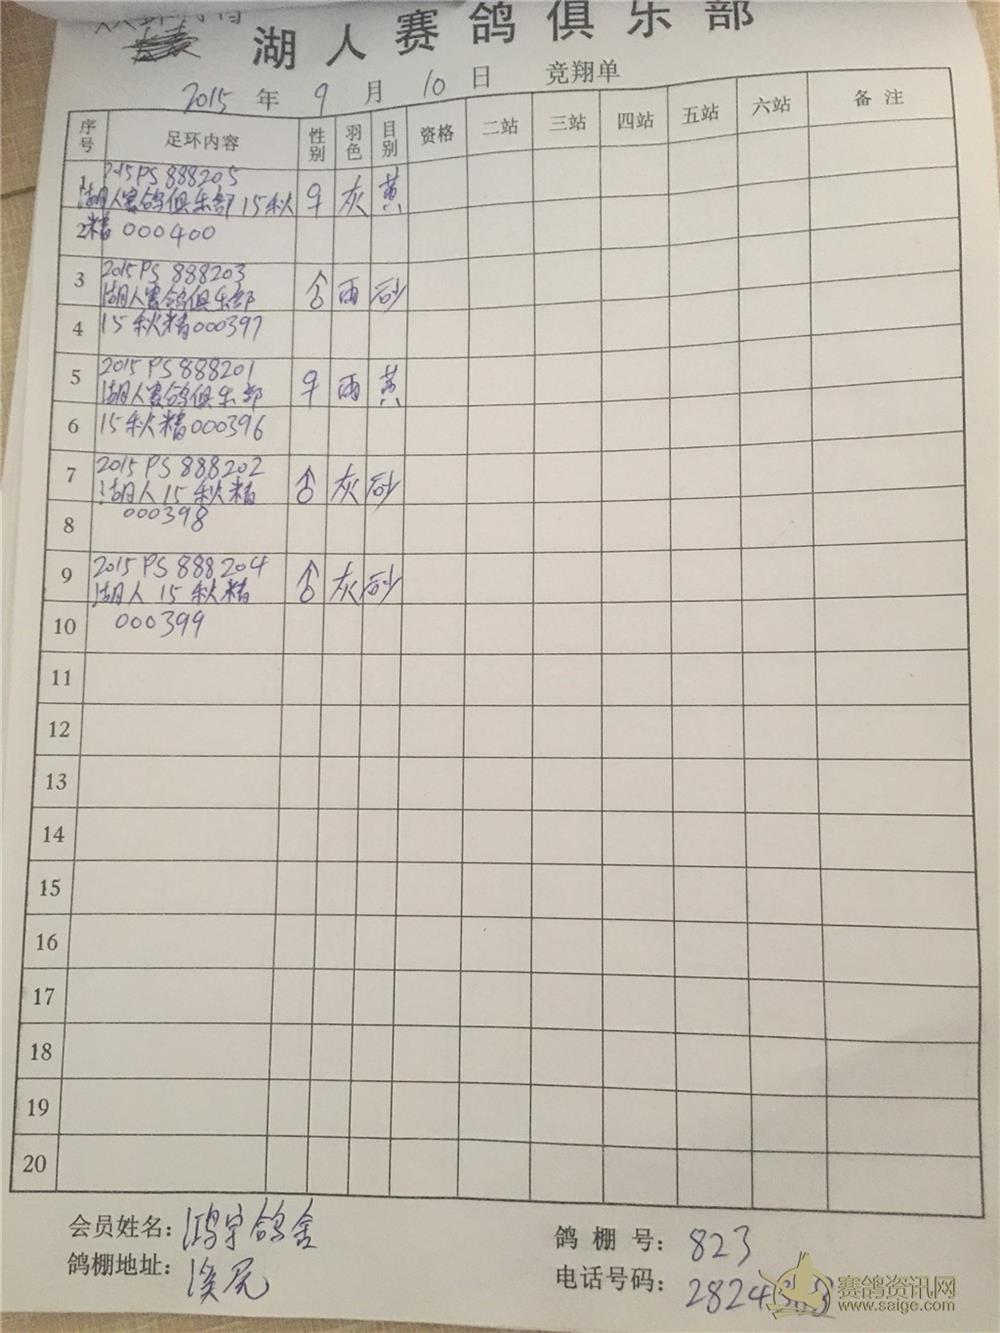 湖人赛鸽俱乐部
2015 年 9 月 10 日 竞翔单
序号 足环内容 性别 羽色 目别 资格 二站 三站 四站 五站 六站 备注
1 2015 PS 888205
湖人赛鸽俱乐部 15秋 ♀ 灰 黄
2 精 000400
3 2015 PS 888203
湖人赛鸽俱乐部 ♂ 雨 砂
4 15秋精000397
5 2015 PS 888201
湖人赛鸽俱乐部 ♀ 雨 黄
6 15秋精000396
7 2015 PS 888202
湖人 15 秋精 ♂ 灰 砂
8 000398
9 2015 PS 888204
湖人 15 秋精 ♂ 灰 砂
10 000399
11
12
13
14
15
16
17
18
19
20
会员姓名：鸿宇鸽舍 鸽棚号：823
鸽棚地址：溪尾 电话号码：2824
赛鸽资讯网
www.saige.com